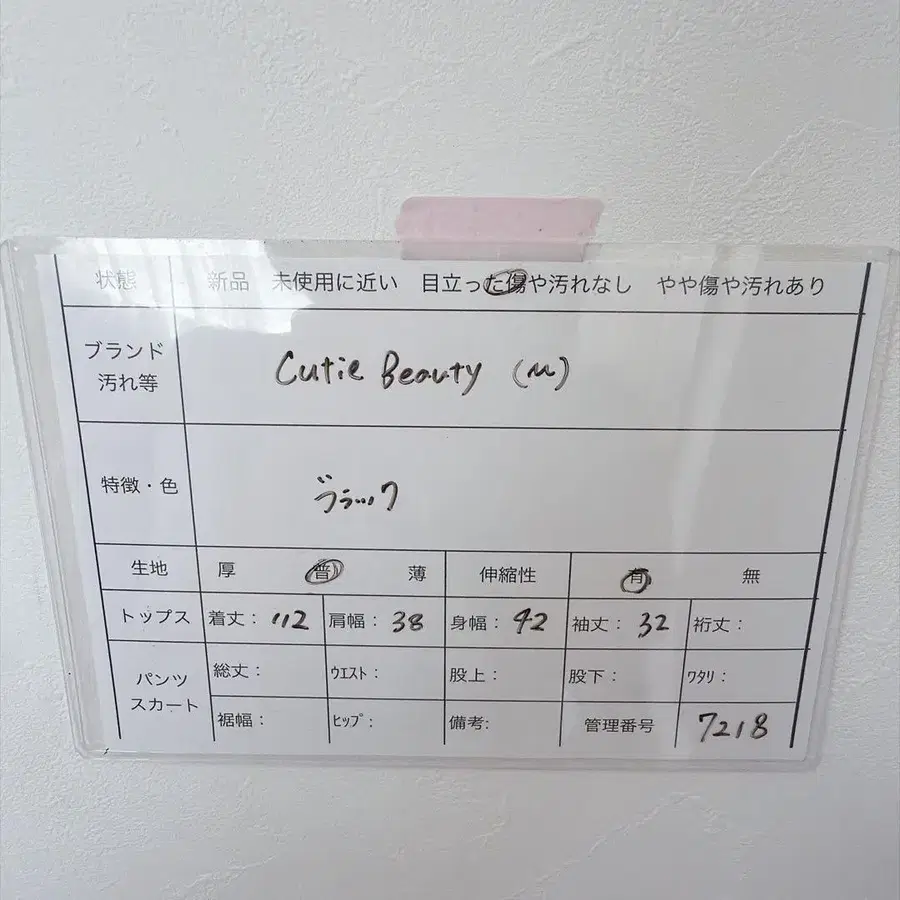 状態 新品 未使用に近い 目立った傷や汚れなし やや傷や汚れあり
ブランド 汚れ等 Cutie Beauty (M)
特徴・色 ブラック
生地 厚 普 薄 伸縮性 有 無
トップス 着丈： 112 肩幅： 38 身幅： 42 袖丈： 32 裄丈：
パンツ スカート 総丈： ウエスト： 股上： 股下： ワタリ：
裾幅： ヒップ： 備考: 管理番号 7218